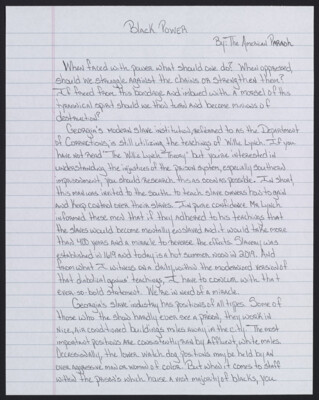 Black Power
By: The American Pariah
When faced with power what should one do? When oppressed,
should we struggle against the chains or strengthen them?
If freed from this bondage and imbued with a morsel of this
tyrannical spirit should we then turn and become minions of
destruction?
Georgia's modern slave institution, referred to as the Department
of Corrections, is still utilizing the teachings of Willy Lynch. If you
have not read "The Willie Lynch Theory" but you're interested in
understanding the injustices of the prison system, especially southern
imprisonment, you should research this as soon as possible. In short,
this man was invited to the south to teach slave owners how to gain
and keep control over their slaves. In pure confidence Mr. Lynch
informed these men that if they adhered to his teachings that
the slaves would become mentally enslaved and it would take more
than 400 years and a miracle to reverse the effects. Slavery was
established in 1619 and today is a hot summer noon in 2019. And
from what I witness on a daily, within the modernized version of
that diabolical genius' teachings, I have to concur with that
ever-so bold statement. We're in need of a miracle.
Georgia's slave industry has positions of all types. Some of
those who run the show hardly ever see a prison, they work in
nice, air conditioned buildings miles away in the city. The most
important positions are consistently held by affluent, white males.
Occasionally, the lower watch dog positions may be held by an
over aggressive man or woman of color. But when it comes to staff
within the prisons which house a vast majority of blacks, you